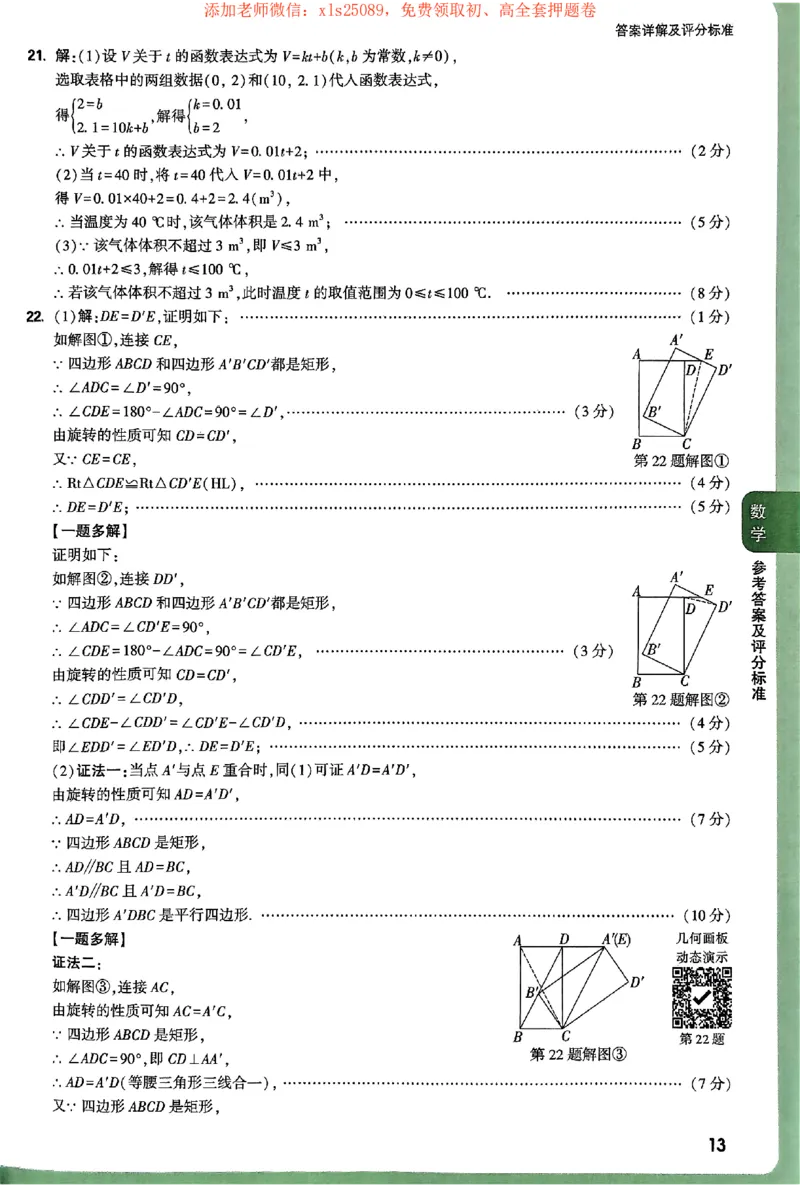 添加老师微信：xls25089，免费领取初、高全套押题卷
答案详解及评分标准
21. 解：(1)设V关于t的函数表达式为V=kt+b(k,b为常数,k≠0)，
选取表格中的两组数据(0，2)和(10，2.1)代入函数表达式，
得{2=b 2.1=10k+b，解得{k=0.01 b=2，
∴V关于t的函数表达式为V=0.01t+2；…………（2分）
(2)当t=40时,将t=40代入V=0.01t+2中，
得V=0.01×40+2=0.4+2=2.4(m³)，
∴当温度为40 ℃时,该气体体积是2.4 m³；…………（5分）
(3)∵该气体体积不超过3 m³,即V≤3 m³，
∴0.01t+2≤3,解得t≤100 ℃，
∴若该气体体积不超过3 m³,此时温度t的取值范围为0≤t≤100 ℃. …………（8分）
22. (1)解:DE=D'E,证明如下：…………（1分）
如解图①,连接CE，
∵四边形ABCD和四边形A'B'CD'都是矩形，
∴∠ADC=∠D'=90°，
∴∠CDE=180°-∠ADC=90°=∠D'，…………（3分）
由旋转的性质可知CD=CD'，
又∵CE=CE，
∴Rt△CDE≌Rt△CD'E(HL)，…………（4分）
∴DE=D'E；…………（5分）
A'
A E
D D'
B'
B C
第22题解图①
【一题多解】
证明如下：
如解图②,连接DD'，
∵四边形ABCD和四边形A'B'CD'都是矩形，
∴∠ADC=∠CD'E=90°，
∴∠CDE=180°-∠ADC=90°=∠CD'E，…………（3分）
由旋转的性质可知CD=CD'，
∴∠CDD'=∠CD'D，
∴∠CDE-∠CDD'=∠CD'E-∠CD'D，…………（4分）
即∠EDD'=∠ED'D,∴DE=D'E；…………（5分）
A'
A E
D D'
B'
B C
第22题解图②
(2)证法一:当点A'与点E重合时,同(1)可证A'D=A'D'，
由旋转的性质可知AD=A'D'，
∴AD=A'D，…………（7分）
∵四边形ABCD是矩形，
∴AD∥BC且AD=BC，
∴A'D∥BC且A'D=BC，
∴四边形A'DBC是平行四边形. …………（10分）
【一题多解】
证法二：
如解图③,连接AC，
由旋转的性质可知AC=A'C，
∵四边形ABCD是矩形，
∴∠ADC=90°,即CD⊥AA'，
∴AD=A'D(等腰三角形三线合一)，…………（7分）
又∵四边形ABCD是矩形，
A D A'(E)
D'
B'
B C
第22题解图③
几何画板
动态演示
第22题
数学
参考答案及评分标准
13